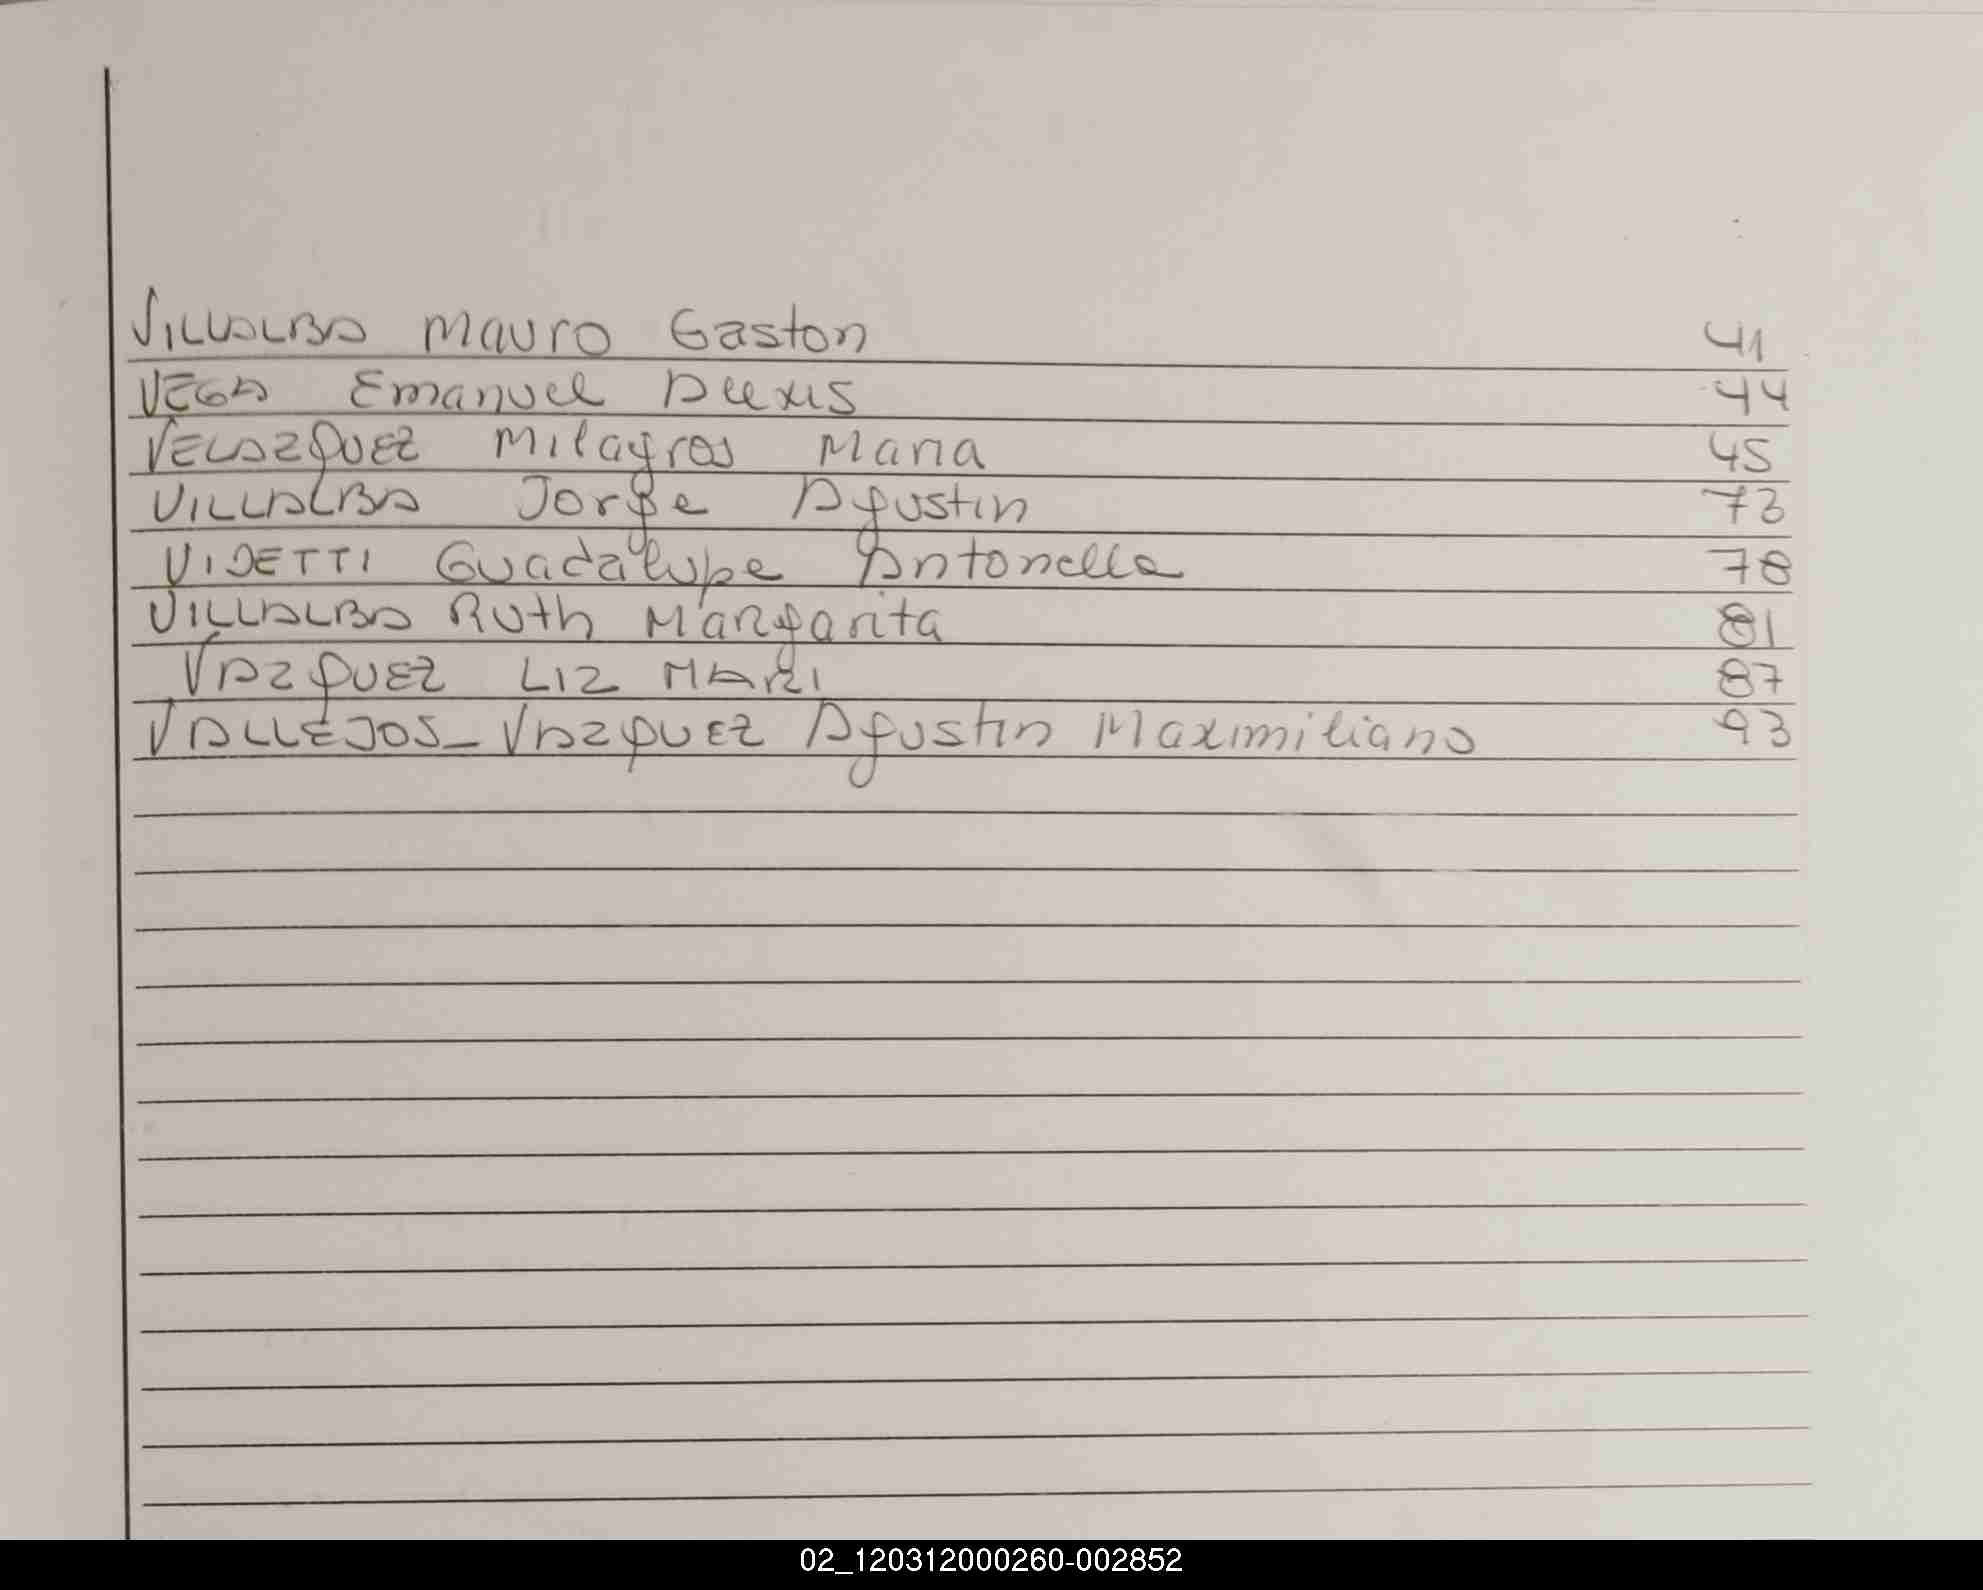 VILLALBA Mauro Gaston 41
VEGA Emanuel Alexis 44
VELAZQUEZ Milagros Maria 45
VILLALBA Jorge Agustin 73
VIDETTI Guadalupe Antonella 78
VILLALBA Ruth Margarita 81
VAZQUEZ LIZ MARI 87
VALLEJOS_VAZQUEZ Agustin Maximiliano 93
02_120312000260-002852